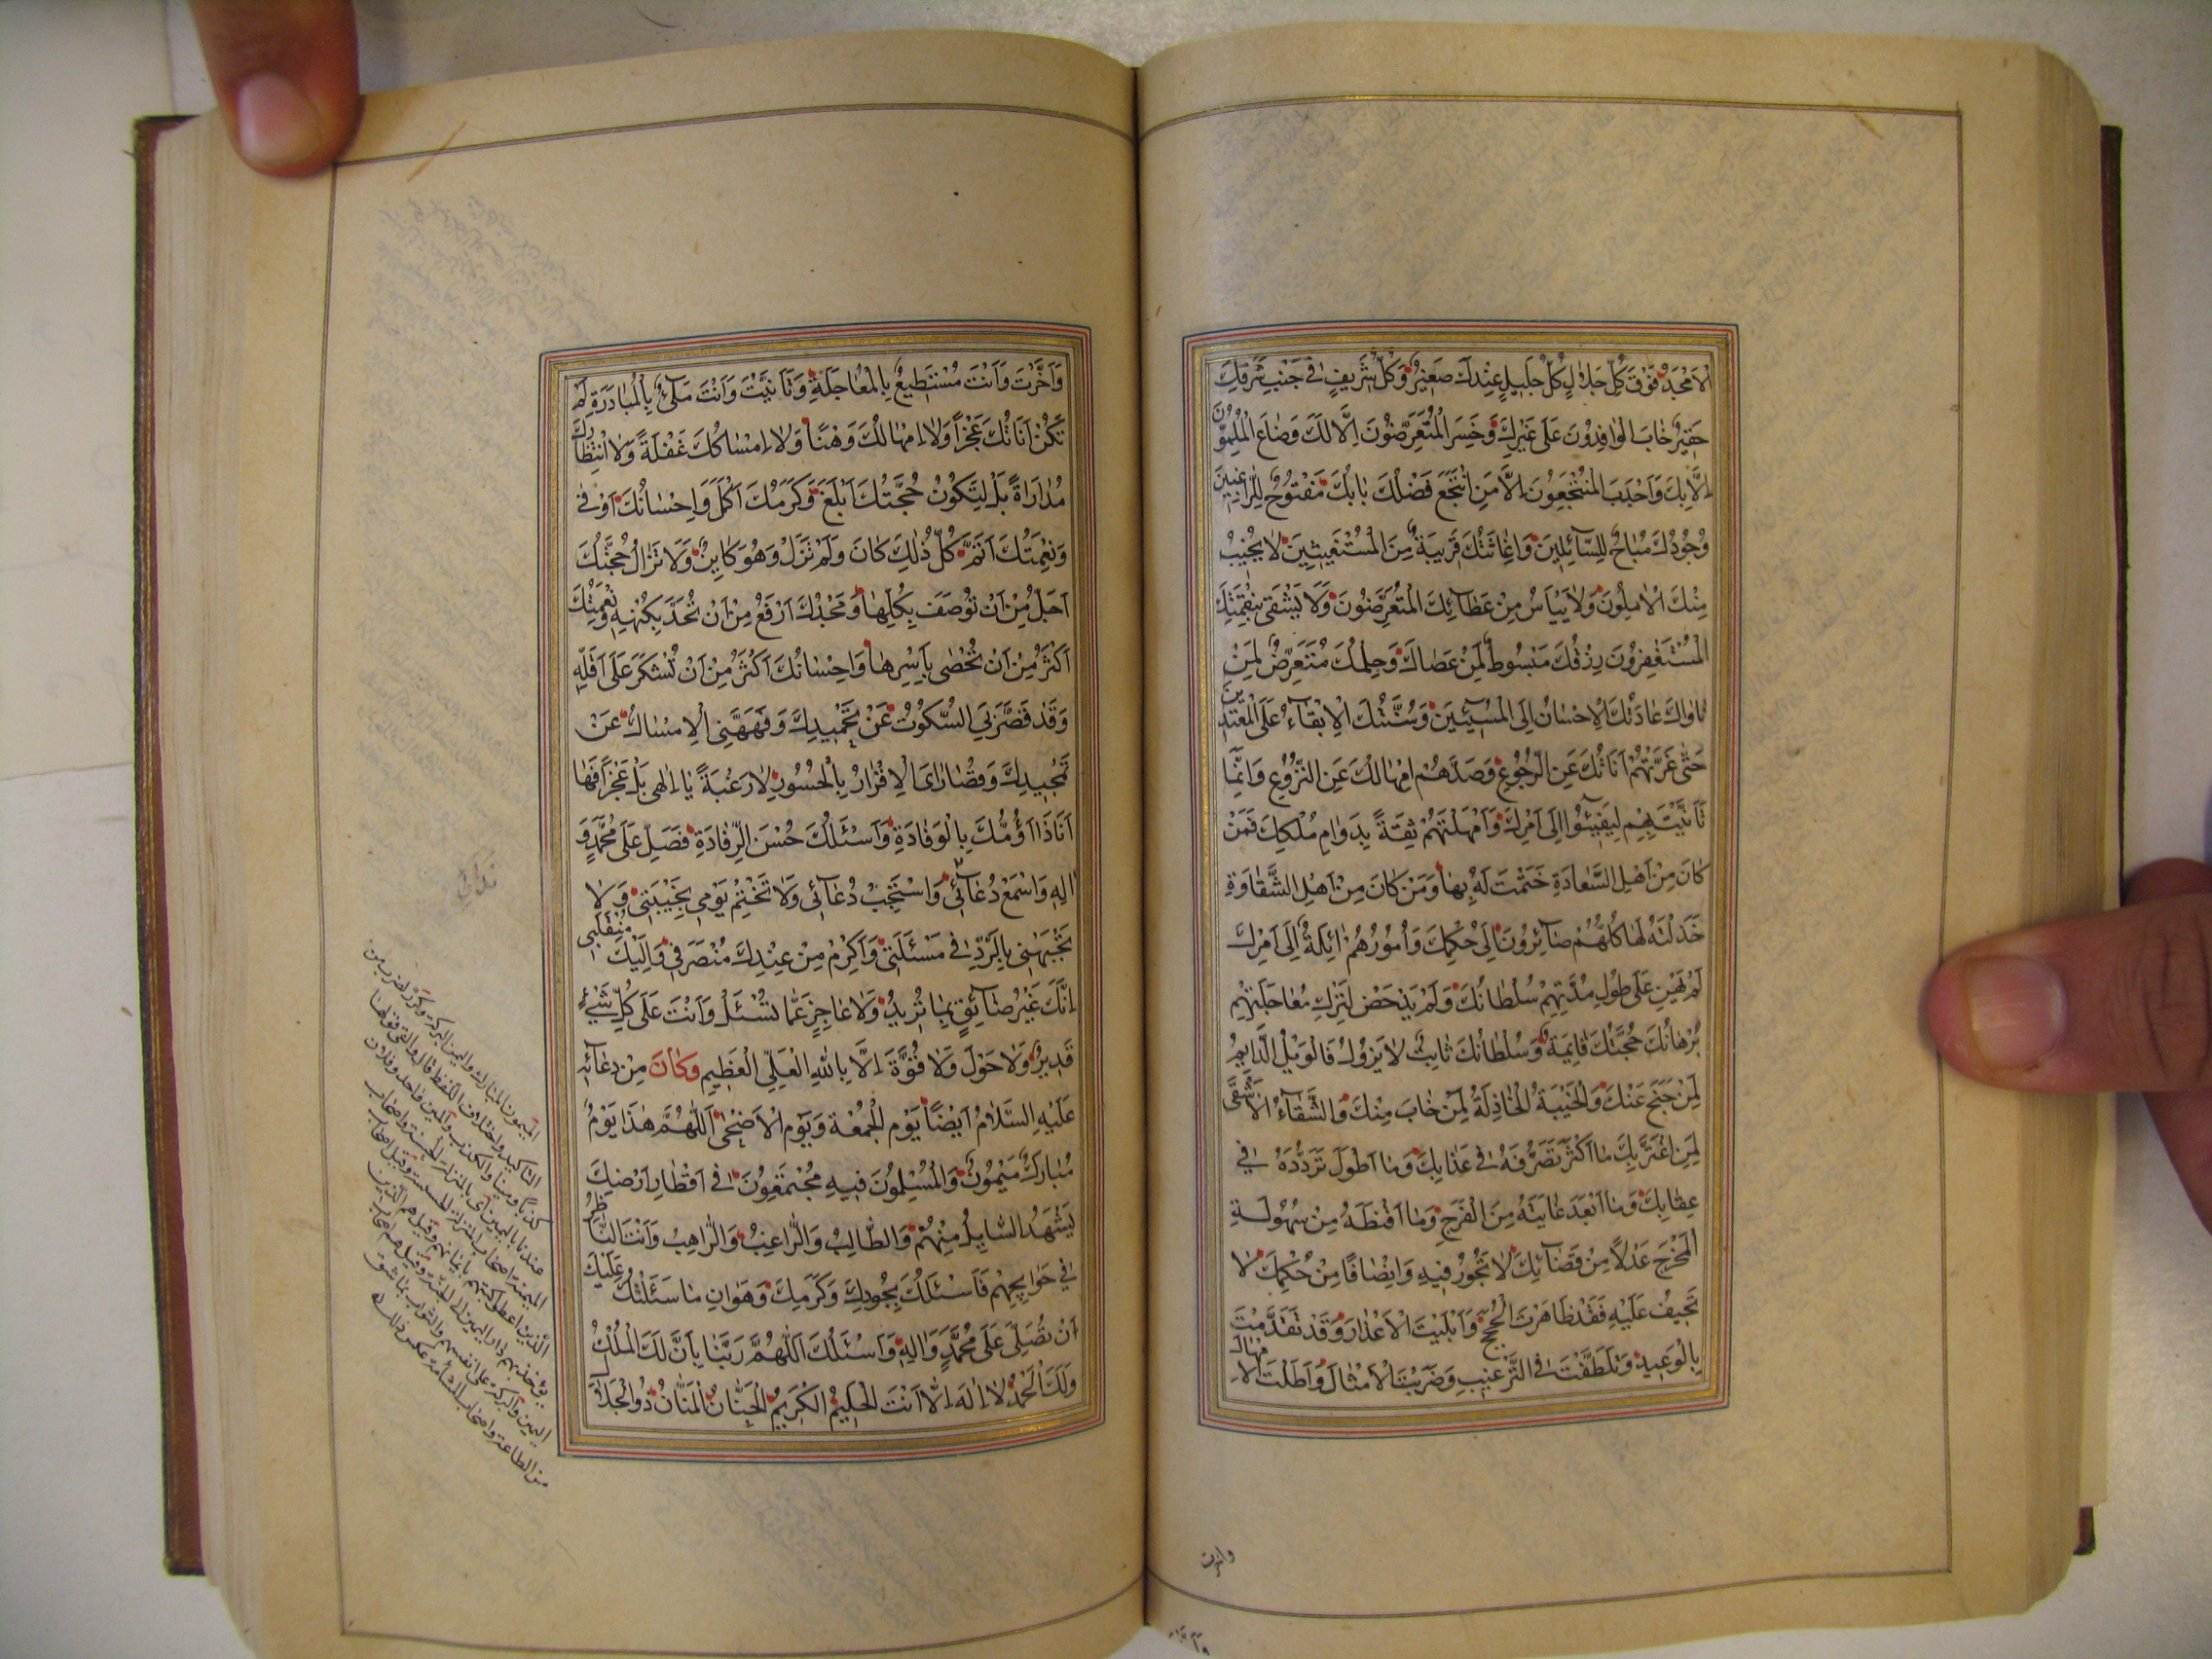 الْاَمْجَدُ فَوْقَ كُلِّ جَلَالٍ كُلُّ جَلِيلٍ عِنْدَكَ صَغِيرٌ وَكُلُّ شَرِيفٍ فِي جَنْبِ شَرَفِكَ
حَقِيرٌ خَابَ الْوَافِدُونَ عَلَى غَيْرِكَ وَخَسِرَ الْمُتَعَرِّضُونَ اِلَّا لَكَ وَضَاعَ الْمُلِمُّونَ
اِلَّا بِكَ وَاَجْدَبَ الْمُنْتَجِعُونَ اِلَّا مَنِ انْتَجَعَ فَضْلَكَ بَابُكَ مَفْتُوحٌ لِلرَّاغِبِينَ
وَجُودُكَ مُبَاحٌ لِلسَّآئِلِينَ وَاِغَاثَتُكَ قَرِيبَةٌ مِنَ الْمُسْتَغِيثِينَ لَا يَخِيبُ
مِنْكَ الْاٰمِلُونَ وَلَا يَيْاَسُ مِنْ عَطَآئِكَ الْمُتَعَرِّضُونَ وَلَا يَشْقَى بِنِقْمَتِكَ
الْمُسْتَغْفِرُونَ رِزْقُكَ مَبْسُوطٌ لِمَنْ عَصَاكَ وَحِلْمُكَ مُتَعَرِّضٌ لِمَنْ
نَاوَاكَ عَادَتُكَ الْاِحْسَانُ اِلَى الْمُسِيئِينَ وَسُنَّتُكَ الْاِبْقَآءُ عَلَى الْمُعْتَدِينَ
حَتَّى غَرَّتْهُمْ اَنَاتُكَ عَنِ الرُّجُوعِ وَصَدَّهُمْ اِمْهَالُكَ عَنِ النُّزُوعِ وَاِنَّمَا
تَاَنَّيْتَ بِهِمْ لِيَفِيئُوا اِلَى اَمْرِكَ وَاَمْهَلْتَهُمْ ثِقَةً بِدَوَامِ مُلْكِكَ فَمَنْ
كَانَ مِنْ اَهْلِ السَّعَادَةِ خَتَمْتَ لَهُ بِهَا وَمَنْ كَانَ مِنْ اَهْلِ الشَّقَاوَةِ
خَذَلْتَهُ لَهَا كُلُّهُمْ صَآئِرُونَ اِلَى حُكْمِكَ وَاُمُورُهُمْ اٰئِلَةٌ اِلَى اَمْرِكَ
لَمْ يَهِنْ عَلَى طُولِ مُدَّتِهِمْ سُلْطَانُكَ وَلَمْ يَدْحَضْ لِتَرْكِ مُعَاجَلَتِهِمْ
بُرْهَانُكَ حُجَّتُكَ قَائِمَةٌ وَسُلْطَانُكَ ثَابِتٌ لَا يَزُولُ فَالْوَيْلُ الدَّائِمُ
لِمَنْ جَنَحَ عَنْكَ وَالْخَيْبَةُ الْخَاذِلَةُ لِمَنْ خَابَ مِنْكَ وَالشَّقَآءُ الْاَشْقَى
لِمَنِ اغْتَرَّ بِكَ مَا اَكْثَرَ تَصَرُّفَهُ فِي عَذَابِكَ وَمَا اَطْوَلَ تَرَدُّدَهُ فِي
عِقَابِكَ وَمَا اَبْعَدَ غَايَتَهُ مِنَ الْفَرَجِ وَمَا اَقْنَطَهُ مِنْ سُهُولَةِ
الْمَخْرَجِ عَدْلًا مِنْ قَضَآئِكَ لَا تَجُورُ فِيهِ وَاِنْصَافًا مِنْ حُكْمِكَ لَا
تَحِيفُ عَلَيْهِ فَقَدْ ظَاهَرْتَ الْحُجَجَ وَاَبْلَيْتَ الْاَعْذَارَ وَقَدْ تَقَدَّمْتَ
بِالْوَعِيدِ وَتَلَطَّفْتَ فِي التَّرْغِيبِ وَضَرَبْتَ الْاَمْثَالَ وَاَطَلْتَ الْاِمْهَالَ
واخرت
وَاَخَّرْتَ وَاَنْتَ مُسْتَطِيعٌ بِالْمُعَاجَلَةِ وَتَاَنَّيْتَ وَاَنْتَ مَلِيٌّ بِالْمُبَادَرَةِ لَمْ
تَكُنْ اَنَاتُكَ عَجْزًا وَلَا اِمْهَالُكَ وَهْنًا وَلَا اِمْسَاكُكَ غَفْلَةً وَلَا انْتِظَارُكَ
مُدَارَاةً بَلْ لِتَكُونَ حُجَّتُكَ اَبْلَغَ وَكَرَمُكَ اَكْمَلَ وَاِحْسَانُكَ اَوْفَى
وَنِعْمَتُكَ اَتَمَّ كُلُّ ذٰلِكَ كَانَ وَلَمْ تَزَلْ وَهُوَ كَائِنٌ وَلَا تَزَالُ حُجَّتُكَ
اَجَلُّ مِنْ اَنْ تُوصَفَ بِكُلِّهَا وَمَجْدُكَ اَرْفَعُ مِنْ اَنْ تُحَدَّ بِكُنْهِهِ وَنِعْمَتُكَ
اَكْثَرُ مِنْ اَنْ تُحْصَى بِاَسْرِهَا وَاِحْسَانُكَ اَكْثَرُ مِنْ اَنْ تُشْكَرَ عَلَى اَقَلِّهِ
وَقَدْ قَصَّرَ بِيَ السُّكُوتُ عَنْ تَحْمِيدِكَ وَفَهَّهَنِي الْاِمْسَاكُ عَنْ
تَمْجِيدِكَ وَقُصَارَايَ الْاِقْرَارُ بِالْحُسُورِ لَا رَغْبَةً يَا اِلٰهِي بَلْ عَجْزًا فَهَا
اَنَا ذَا اَؤُمُّكَ بِالْوِفَادَةِ وَاَسْئَلُكَ حُسْنَ الرِّفَادَةِ فَصَلِّ عَلَى مُحَمَّدٍ وَ
اٰلِهِ وَاسْمَعْ دُعَآئِي وَاسْتَجِبْ دُعَآئِي وَلَا تَخْتِمْ يَوْمِي بِخَيْبَتِي وَلَا
تَجْبَهْنِي بِالرَّدِّ فِي مَسْئَلَتِي وَاَكْرِمْ مِنْ عِنْدِكَ مُنْصَرَفِي وَاِلَيْكَ مُنْقَلَبِي
اِنَّكَ غَيْرُ ضَآئِقٍ بِمَا تُرِيدُ وَلَا عَاجِزٍ عَمَّا تُسْئَلُ وَاَنْتَ عَلَى كُلِّ شَيْءٍ
قَدِيرٌ وَلَا حَوْلَ وَلَا قُوَّةَ اِلَّا بِاللّٰهِ الْعَلِيِّ الْعَظِيمِ وَكَانَ مِنْ دُعَآئِهِ
عَلَيْهِ السَّلَامُ اَيْضًا يَوْمَ الْجُمُعَةِ وَيَوْمَ الْاَضْحٰى اَللّٰهُمَّ هٰذَا يَوْمٌ
مُبَارَكٌ مَيْمُونٌ وَالْمُسْلِمُونَ فِيهِ مُجْتَمِعُونَ فِي اَقْطَارِ اَرْضِكَ
يَشْهَدُ السَّائِلُ مِنْهُمْ وَالطَّالِبُ وَالرَّاغِبُ وَالرَّاهِبُ وَاَنْتَ النَّاظِرُ
فِي حَوَائِجِهِمْ فَاَسْئَلُكَ بِجُودِكَ وَكَرَمِكَ وَهَوَانِ مَا سَئَلْتُكَ عَلَيْكَ
اَنْ تُصَلِّيَ عَلَى مُحَمَّدٍ وَاٰلِهِ وَاَسْئَلُكَ اَللّٰهُمَّ رَبَّنَا بِاَنَّ لَكَ الْمُلْكَ
وَلَكَ الْحَمْدُ لَا اِلٰهَ اِلَّا اَنْتَ الْحَلِيمُ الْكَرِيمُ الْحَنَّانُ الْمَنَّانُ ذُو الْجَلَالِ